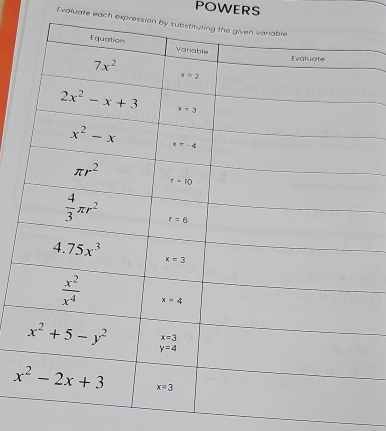 POWERS
Evaluate each expression by substituting the given variable
Equation Variable Evaluate
7x² x = 2
2x² − x + 3 x = 3
x² − x x = -4
πr² r = 10
4/3 πr² r = 6
4.75x³ x = 3
x²/x⁴ x = 4
x² + 5 − y² x=3
y=4
x² − 2x + 3 x=3